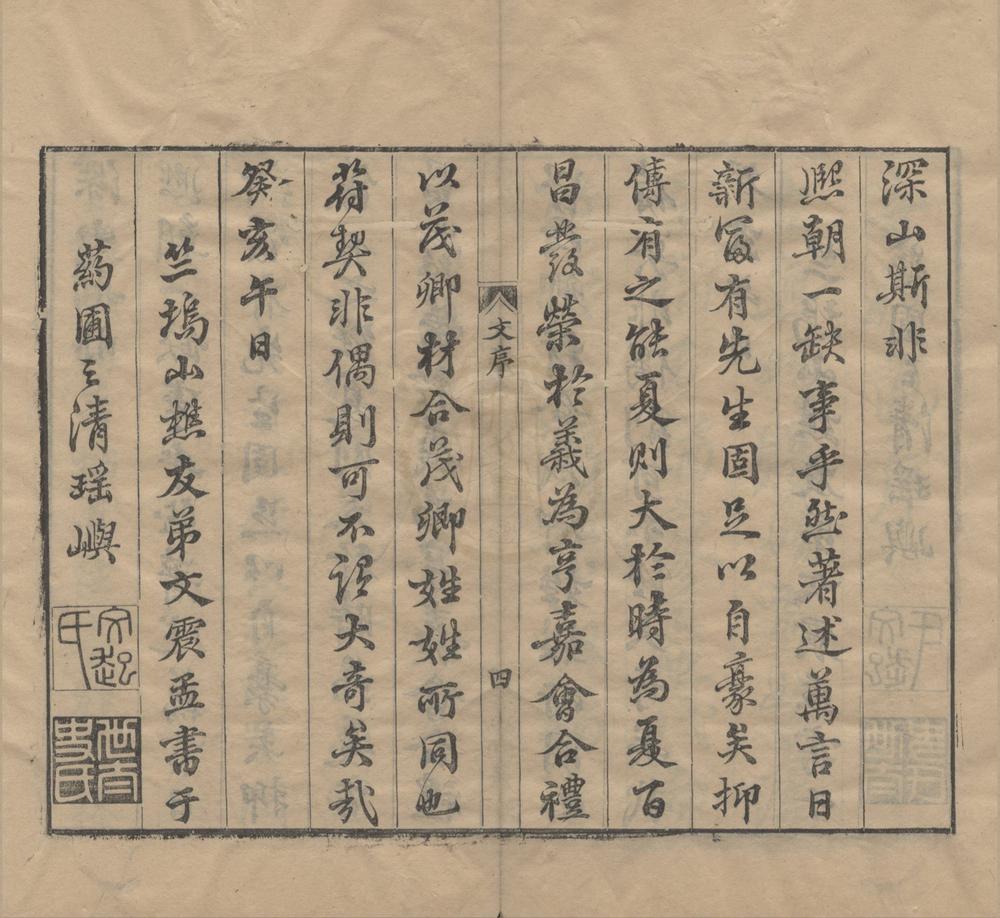 深山斯非
熙朝一缺事乎然著述萬言日
新富有先生固足以自豪矣抑
傳有之能夏則大於時為夏百
昌發榮於義為亨嘉會合禮
文序 四
以茂卿材合茂卿姓姓所同也
符契非偶則可不謂大奇矣哉
癸亥午日
竺塢山樵友弟文震孟書于
葯圃之清瑶嶼
文起氏